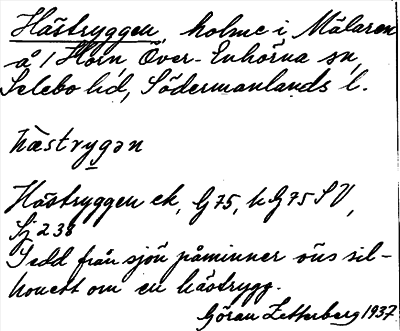 Hästryggen, holme i Mälaren
å / Horn Över-Enhörna sn,
Selebo hd, Södermanlands l.
hæstrygən
Hästryggen ek, G 75, h G 75 SV,
Sj 238
Sedd från sjön påminner öns sil-
houett om en hästrygg.
Göran Zetterberg 1937